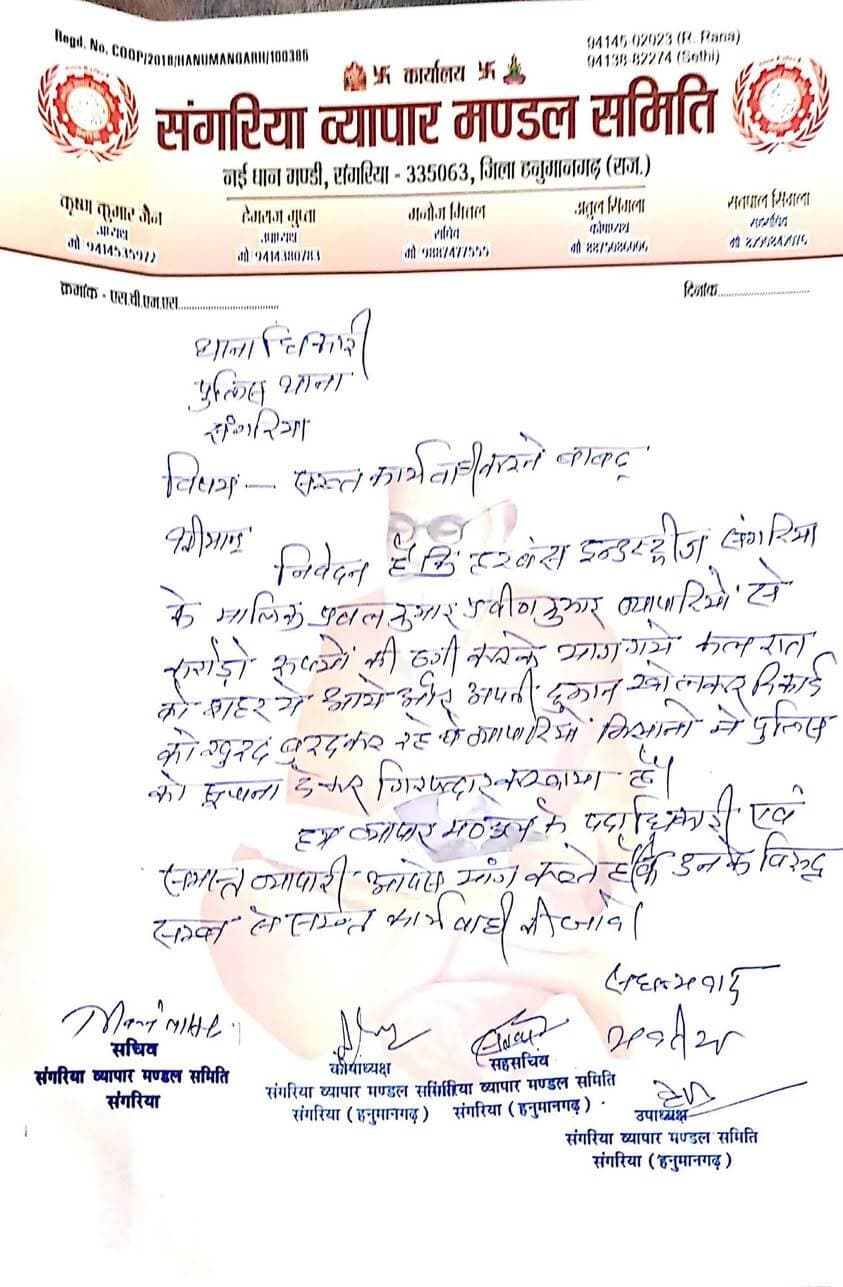 Regd. No. COOP/2018/HANUMANGARH/100386
94145-02023 (R. Rana)
94138-82274 (Sethi)
卐 कार्यालय 卐
संगरिया व्यापार मण्डल समिति
नई धान मण्डी, संगरिया - 335063, जिला हनुमानगढ़ (राज.)
कृष्ण कुमार जैन
अध्यक्ष
मो 9414535977
हेमराज गुप्ता
उपाध्यक्ष
मो 9414380783
मनोज मित्तल
सचिव
मो 9887477555
अतुल सिंगला
कोषाध्यक्ष
मो
सतपाल सिंगला
सहसचिव
मो
क्रमांक - एस.बी.एम.एस..........................
दिनांक..........................
थानाधिकारी
पुलिस थाना
संगरिया
विषय - सख्त कार्यवाही करने बाबद्
श्रीमान्
निवेदन है कि हरबंस इन्डस्ट्रीज संगरिया
के मालिक कुमार, प्रवीण कुमार व्यापारियों से
करोड़ो रूपयों की ठगी करके भाग गये कल रात
को बाहर से आये और अपनी दुकान खोलकर रिकार्ड
को खुरद बुरद कर रहे थे व्यापारियों किसानो ने पुलिस
को सूचना देकर गिरफ्दार करवाया है।
हम व्यापार मण्डल के पदाधिकारी एवं
समस्त व्यापारी आपसे मांग करते है कि उनके विरुद्ध
सख्त से सख्त कार्यवाही की जावे।
सधन्यवाद
भवदीय
सचिव
संगरिया व्यापार मण्डल समिति
संगरिया
कोषाध्यक्ष
संगरिया व्यापार मण्डल समिति
संगरिया (हनुमानगढ़)
सहसचिव
संगरिया व्यापार मण्डल समिति
संगरिया (हनुमानगढ़)
उपाध्यक्ष
संगरिया व्यापार मण्डल समिति
संगरिया (हनुमानगढ़)